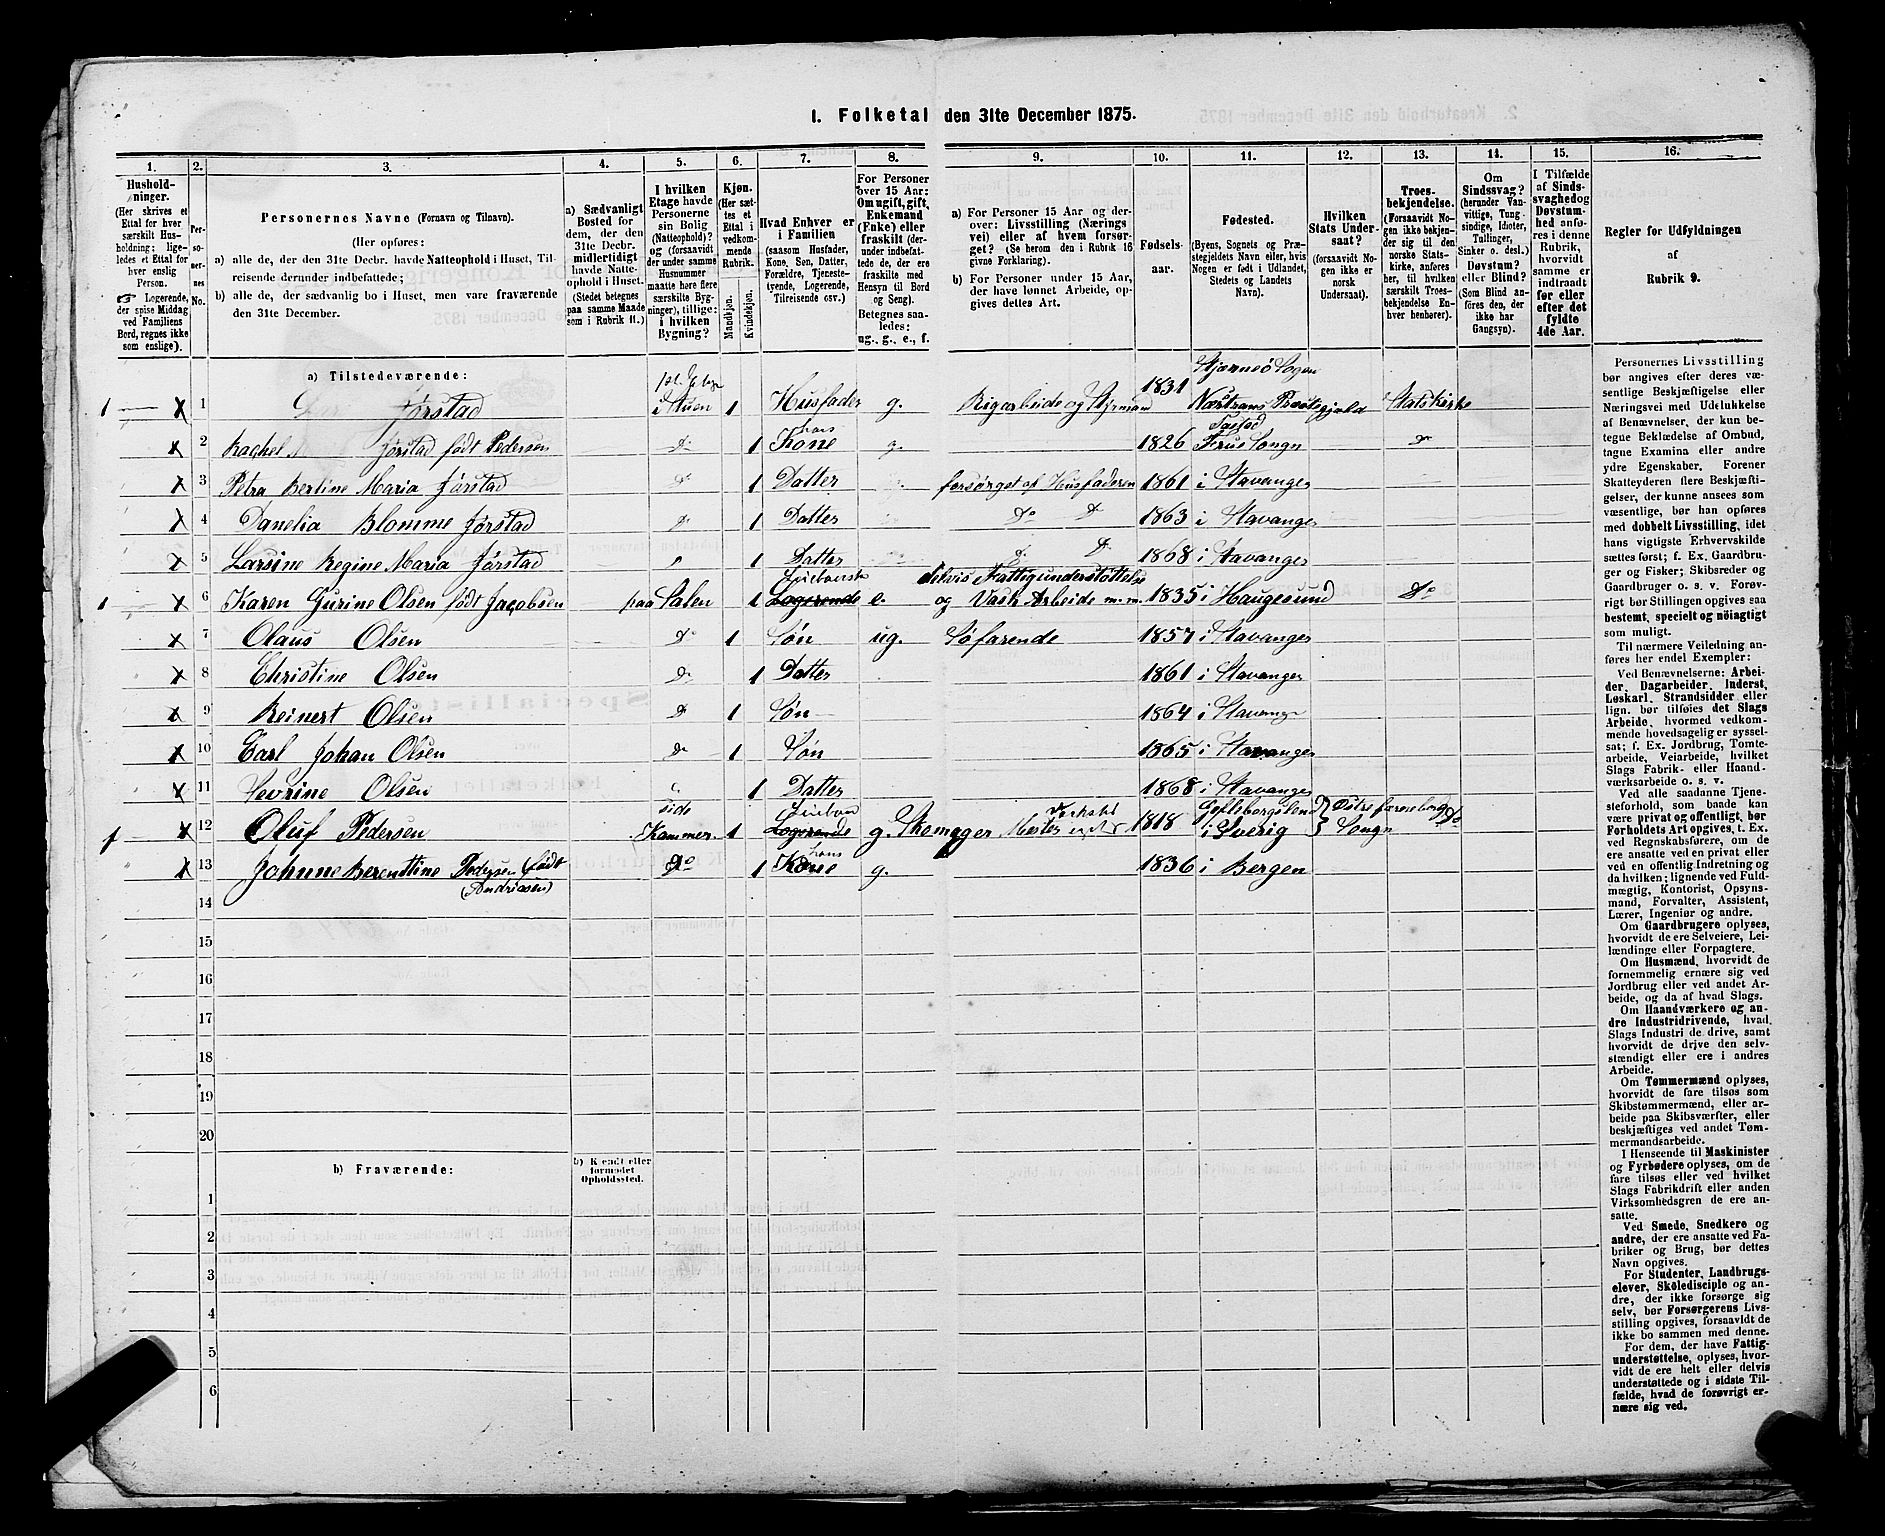 1. Folketal den 31te December 1875.
1. 2. 3. 4. 5. 6. 7. 8. 9. 10. 11. 12. 13. 14. 15. 16.
Hushold-
ninger.
(Her skrives et
Ettal for hver
særskilt Hus-
holdning; lige-
ledes et Ettal for
hver enslig
Person.
☞ Logerende,
der spise Middag
ved Familiens
Bord, regnes ikke
som enslige).
Per-
so-
ner-
nes
No.
Personernes Navne (Fornavn og Tilnavn).
(Her opføres:
a) alle de, der den 31te Decbr. havde Natteophold i Huset, Til-
reisende derunder indbefattede;
b) alle de, der sædvanlig bo i Huset, men vare fraværende
den 31te December.
a) Sædvanligt
Bosted for
dem, der den
31te Decbr.
midlertidigt
havde Natte-
ophold i Huset.
(Stedet betegnes
paa samme Maade
som i Rubrik 11.)
I hvilken
Etage havde
Personerne
sin Bolig
(Natteophold)?
og (forsaavidt
der under samme
Husnummer
maatte høre flere
særskilte Byg-
ninger), tillige:
i hvilken
Bygning?
Kjøn.
(Her sæt-
tes et
Ettal i
vedkom-
mende
Rubrik.
Mandkjøn.
Kvindekjøn.
Hvad Enhver er
i Familien
(saasom Husfader,
Kone, Søn, Datter,
Forældre, Tjeneste-
tyende, Logerende,
Tilreisende osv.)
For Personer
over 15 Aar:
Om ugift, gift,
Enkemand
(Enke) eller
fraskilt (der-
under indbefat-
tede de, der ere
fraskilte med
Hensyn til Bord
og Seng).
Betegnes saa-
ledes:
ug., g., e., f.
a) For Personer 15 Aar og der-
over: Livsstilling (Nærings
vei) eller af hvem forsør-
get? (Se herom den i Rubrik 16
givne Forklaring).
b) For Personer under 15 Aar,
der have lønnet Arbeide, op-
gives dettes Art.
Fødsels-
aar.
Fødested.
(Byens, Sognets og Præ-
stegjeldets Navn eller, hvis
Nogen er født i Udlandet,
Stedets og Landets
Navn).
Hvilken
Stats Under-
saat?
(forsaavidt
Nogen ikke
er norsk
Undersaat).
Troes-
bekjendelse.
(Forsaavidt No-
gen ikke bekjen-
der sig til den
norske Stats-
kirke, anføres
her, til hvilken
særskilt Troes-
bekjendelse En-
hver henhører).
Om
Sindssvag?
(herunder Van-
vittige, Tung-
sindige, Idioter,
Tullinger,
Sinker o. desl.).
Døvstum?
eller Blind?
(Som Blind an-
føres den, der
ikke har
Gangsyn).
I Tilfælde
af Sinds-
svaghed og
Døvstum-
hed anfø-
res i denne
Rubrik,
hvorvidt
samme er
indtraadt
før eller
efter det
fyldte
4de Aar.
Regler for Udfyldningen
af
Rubrik 9.
a) Tilstedeværende:
1 1 Jørstad i Stuen 1 Husfader g. Rigarbeide og Styrmand 1831 Hjermeø Sogn Næstrans Præstegjæld Statskirke
2 Rachel Jørstad født Pedersen Do 1 hans Kone g. 1826 Frue Songn Do
3 Petra Bertine Maria Jørstad Do 1 Datter forsørget af Husfaderen 1861 i Stavanger
4 Danelia Blomme Jørstad Do 1 Datter Do Do 1863 i Stavanger
5 Larsine Regine Maria Jørstad 1 Datter Do Do 1868 i Stavanger
1 6 Karen Jurine Olsen født Jacobsen paa Salen 1 Logerende e. delvis Fattigunderstøttelse og Vask Arbeide m.m. 1835 i Haugesund Do
7 Olaus Olsen Do 1 Søn ug. Søfarende 1857 i Stavanger
8 Christine Olsen Do 1 Datter 1861 i Stavanger
9 Reinert Olsen Do 1 Søn 1864 i Stavange
10 Carl Johan Olsen Do 1 Søn 1865 i Stavanger
11 Sevrine Olsen 1 Datter 1868 i Stavanger
1 12 Oluf Pedersen side Kammer 1 Logerende g. Skomager Mester 1818 i Sverig Songn Do
13 Johnne Berendtine Pedersen (født Andriasen) Do 1 hans Kone g. 1836 i Bergen
14
15
16
17
18
19
20
b) Fraværende:
b) Kjendt eller
formodet
Opholdssted.
1
2
3
4
5
6
Personernes Livsstilling
bør angives efter deres væ-
sentlige Beskjæftigelse eller
Næringsvei med Udelukkelse
af Benævnelser, der kun be-
tegne Beklædelse af Ombud,
tagne Examina eller andre
ydre Egenskaber. Forener
Skatteyderen flere Beskjæfti-
gelser, der kunne ansees som
væsentlige, bør han opføres
med dobbelt Livsstilling, idet
hans vigtigste Erhvervskilde
sættes først; f. Ex. Gaardbru-
ger og Fisker; Skibsreder og
Gaardbruger o. s. v. Forøv-
rigt bør Stillingen opgives saa
bestemt, specielt og nöiagtigt
som muligt.
Til nærmere Veiledning an-
føres her endel Exempler:
Ved Benævnelserne: Arbei-
der, Dagarbeider, Inderst,
Løskarl, Strandsidder eller
lign. bør tilføies det Slags
Arbeide, hvormed vedkom-
mende hovedsagelig er syssel-
sat; f. Ex. Jordbrug, Tomte-
arbeide, Veiarbeide, hvilket
Slags Fabrik- eller Haand-
værksarbeide o. s. v.
Ved alle saadanne Tjene-
steforhold, som baade kan
være privat og offentligt, bør
Forholdets Art opgives, t. Ex.
ved Regnskabsførere, om de
ere ansatte ved en privat eller
ved en offentlig Indretning og
da hvilken; lignende ved Fuld-
mægtig, Kontorist, Opsyns-
mand, Forvalter, Assistent,
Lærer, Ingeniør og andre.
Om Gaardbrugere oplyses,
hvorvidt de ere Selveiere, Lei-
lændinge eller Forpagtere.
Om Husmænd, hvorvidt de
fornemmelig ernære sig ved
Jordbrug eller ved andet Ar-
beide, og da af hvad Slags.
Om Haandværkere og an-
dre Industridrivende, hvad
Slags Industri de drive, samt
hvorvidt de drive den selv-
stændigt eller ere i andres
Arbeide.
Om Tømmermænd oplyses,
hvorvidt de fare tilsøs som
Skibstømmermænd, eller ar-
beide paa Skibsværfter, eller
beskjæftiges ved andet Tøm-
mermandsarbeide.
I Henseende til Maskinister
og Fyrbødere oplyses, om de
fare tilsøs eller ved hvilket
Slags Fabrikdrift eller anden
Virksomhedsgren de ere an-
satte.
Ved Smede, Snedkere og
andre, der ere ansatte ved Fa-
briker og Brug, bør dettes
Navn opgives.
For Studenter, Landbrugs-
elever, Skoledisciple og an-
dre, der ikke forsørge sig
selv, bør Forsørgerens Livs-
stilling opgives, forsaavidt de
ikke bo sammen med denne.
For dem, der have Fattig-
understøttelse, oplyses, hvor-
vidt de ere helt eller delvis
understøttede og i sidste Til-
fælde, hvad de forøvrigt er-
nære sig ved.